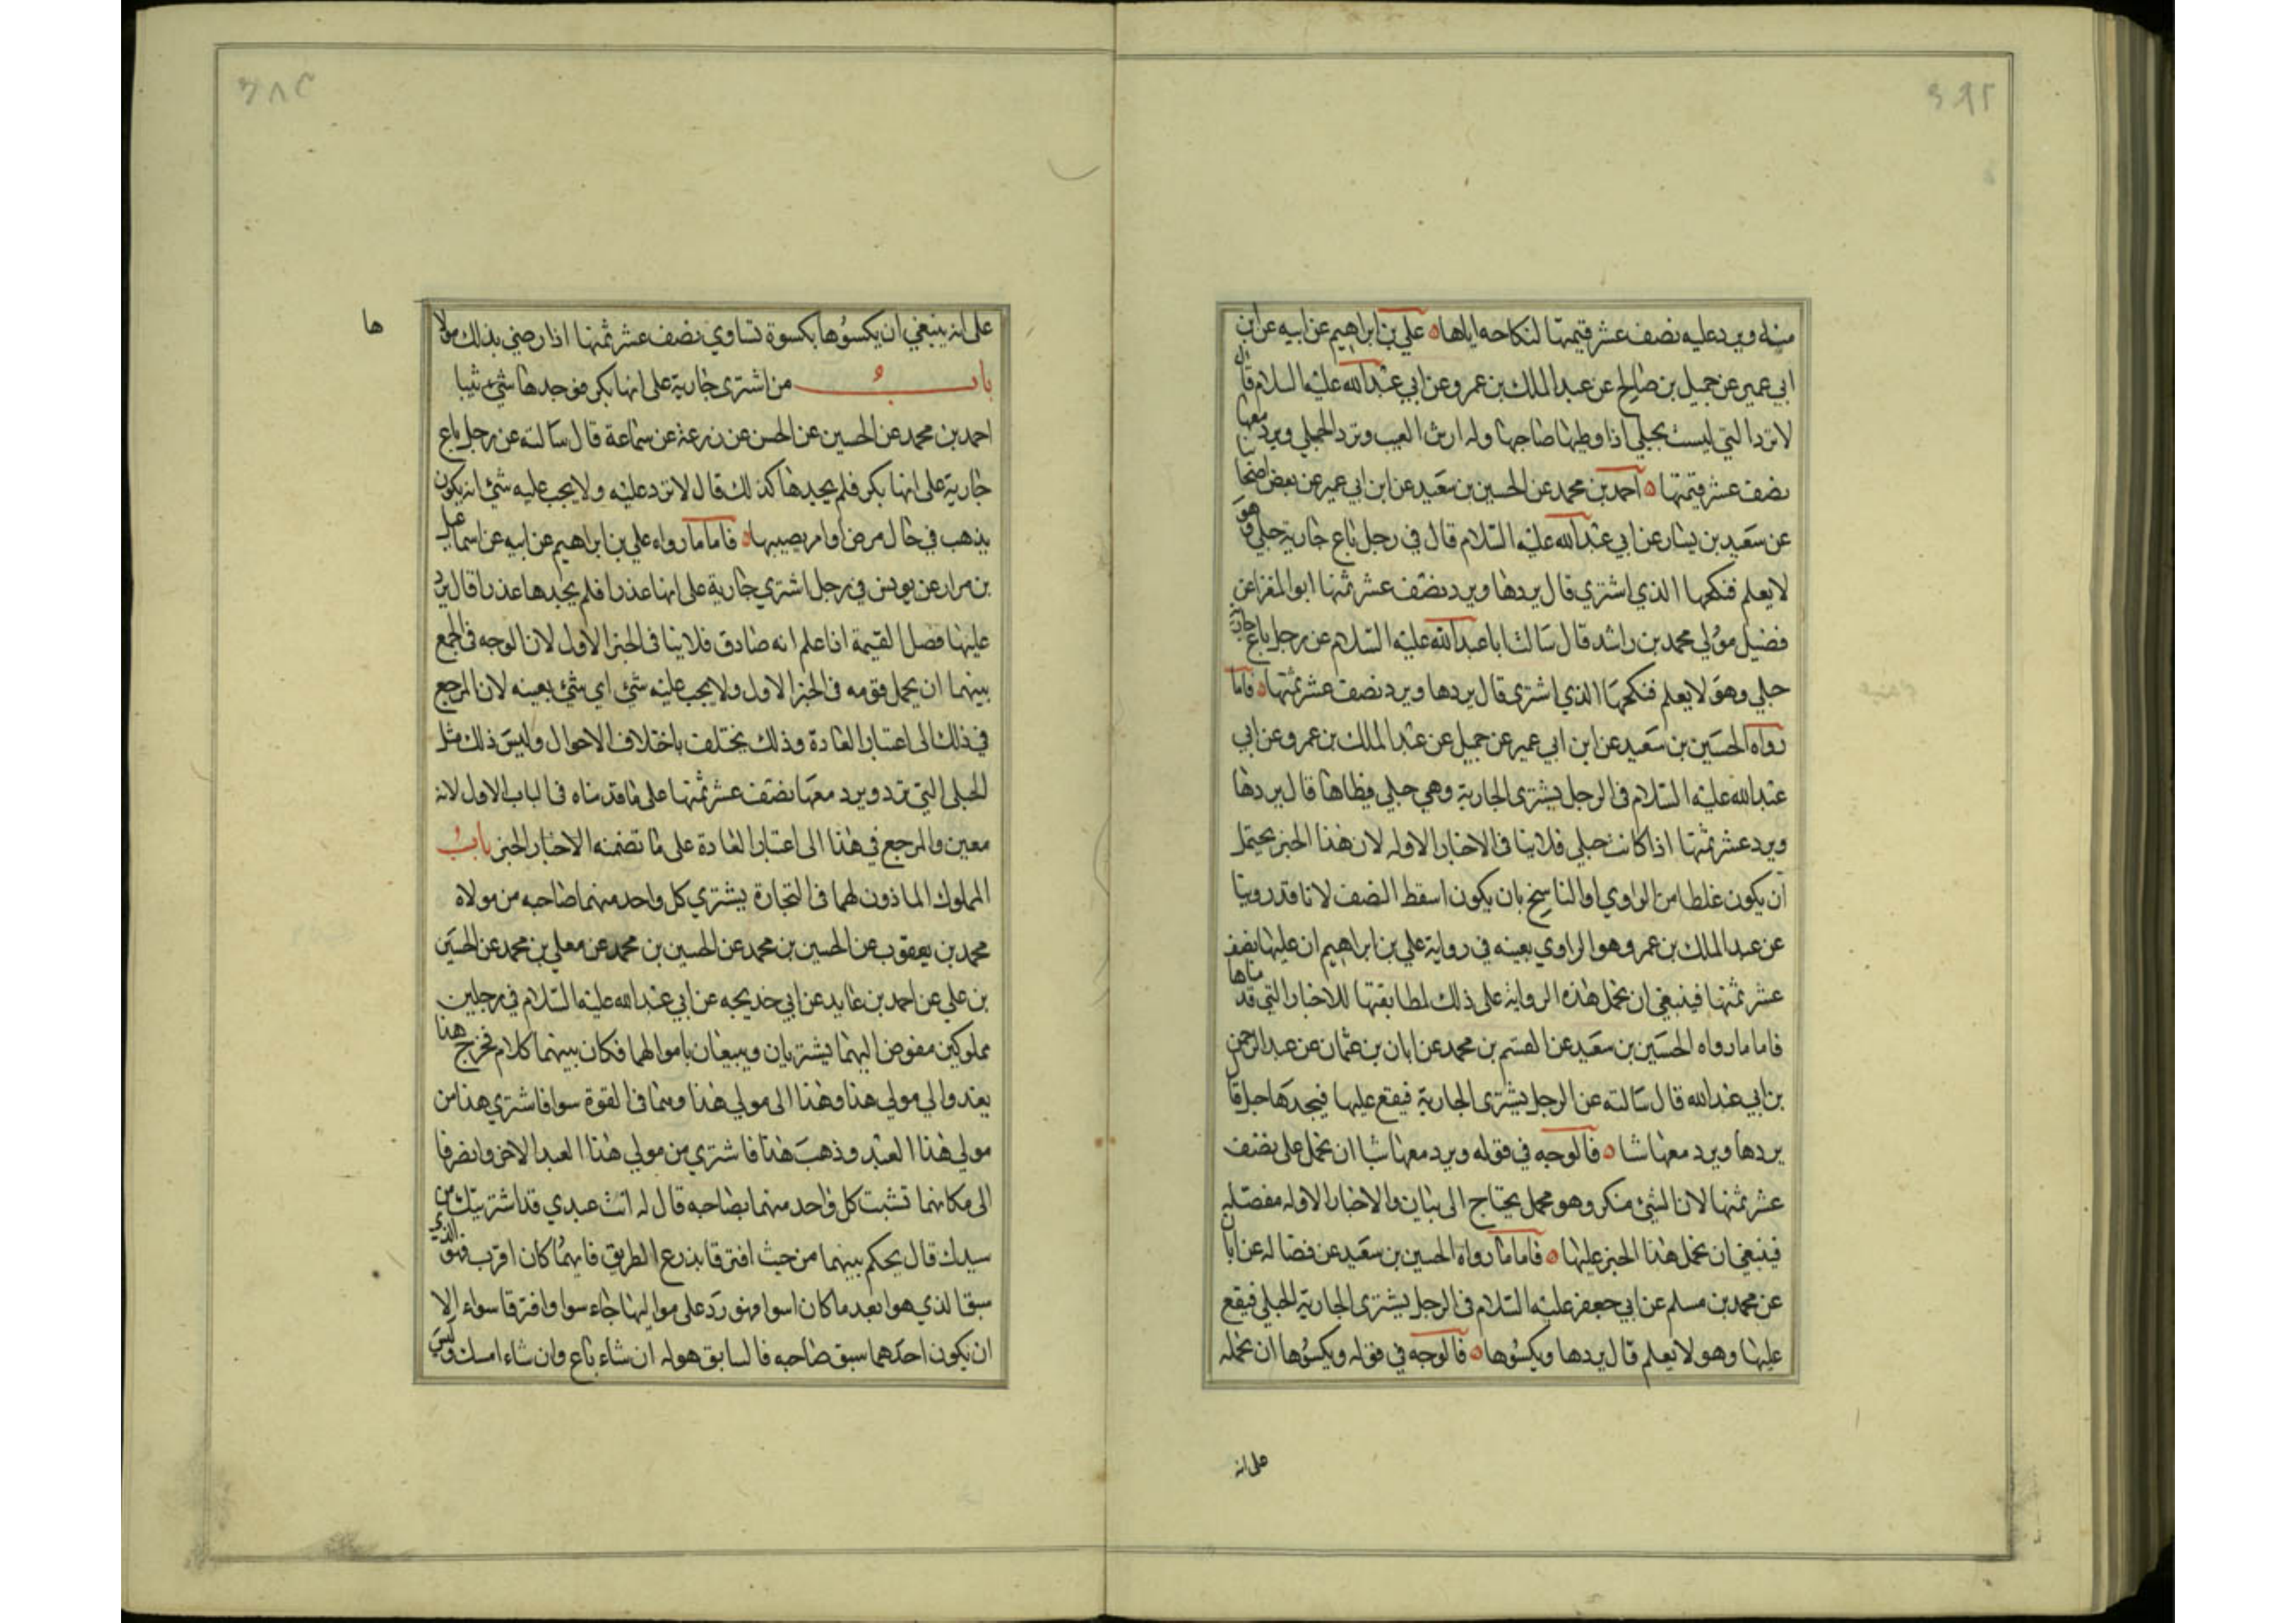 منه ويرد عليه نصف عشر قيمتها لنكاحه اياها ه علي بن ابراهيم عن ابيه عن ابن
ابي عمير عن جميل بن صالح عن عبد الملك بن عمرو عن ابي عبد الله عليه السلام قال
لا ترد التي ليست بحبلي اذا وطيها صاحبها وله ارش العيب وترد الحبلي ويرد معها
نصف عشر قيمتها ه احمد بن محمد عن الحسين بن سعيد عن ابن ابي عمير عن بعض اصحابنا
عن سعيد بن يسار عن ابي عبد الله عليه السلام قال في رجل باع جارية حبلي وهو
لا يعلم فنكحها الذي اشتري قال يردها ويرد نصف عشر ثمنها ابو المغرا عن
فضيل مولي محمد بن راشد قال سالت ابا عبد الله عليه السلام عن رجل باع جارية
حبلي وهو لا يعلم فنكحها الذي اشتري قال يردها ويرد نصف عشر ثمنها ه فاما
رواه الحسين بن سعيد عن ابن ابي عمير عن جميل عن عبد الملك بن عمرو عن ابي
عبد الله عليه السلام في الرجل يشتري الجارية وهي حبلي فيطاها قال يردها
ويرد عشر ثمنها اذا كانت حبلي فلا ينافي الاخبار الاوله لان هذا الخبر يحتمل
ان يكون غلطا من الراوي او الناسخ بان يكون اسقط النصف لانا قد روينا
عن عبد الملك بن عمرو هو الراوي بعينه في رواية علي بن ابراهيم ان عليها نصف
عشر ثمنها فينبغي ان نحمل هذه الرواية على ذلك لمطابقتها للاخبار التي قدمناها
فاما ما رواه الحسين بن سعيد عن القسم بن محمد عن ابان بن عثمان عن عبد الرحمن
بن ابي عبد الله قال سالته عن الرجل يشتري الجارية فيقع عليها فيجدها حبلي قال
يردها ويرد معها شيا ه فالوجه في قوله ويرد معها شيا ان نحمل على نصف
عشر ثمنها لان الشئ منكر وهو مجمل يحتاج الى بيان والاخبار الاوله مفصله
فينبغي ان نحمل هذا الخبر عليها ه فاما ما رواه الحسين بن سعيد عن فضاله عن ابان
عن محمد بن مسلم عن ابي جعفر عليه السلام في الرجل يشتري الجارية الحبلي فيقع
عليها وهو لا يعلم قال يردها ويكسوها ه فالوجه في قوله ويكسوها ان نحمله
على انه
على انه ينبغي ان يكسوها بكسوة تساوي نصف عشر ثمنها اذا رضي بذلك مولا
ها
باب من اشتري جارية على انها بكر فوجدها ثيبا
احمد بن محمد عن الحسين عن الحسن عن زرعة عن سماعة قال سالته عن رجل باع
جارية على انها بكر فلم يجدها كذلك قال لا ترد عليه ولا يجب عليه شئ انه يكون
يذهب في حال مرض او امر يصيبها ه فاما ما رواه علي بن ابراهيم عن ابيه عن اسماعيل
بن مرار عن يونس في رجل اشتري جارية على انها عذرا فلم يجدها عذرا قال يرد
عليها فضل القيمة اذا علم انه صادق فلا ينافي الخبر الاول لان الوجه في الجمع
بينهما ان يحمل قوله في الخبر الاول ولا يجب عليه شئ اي شئ بعينه لان المرجع
في ذلك الى اعتبار العادة وذلك يختلف باختلاف الاحوال وليس ذلك مثل
الحبلي التي ترد ويرد معها نصف عشر ثمنها على ما قدمناه في الباب الاول لانه
معين والمرجع في هذا الى اعتبار العادة على ما تضمنه الاخبار الخبر باب
المملوك الماذون لهما في التجارة يشتري كل واحد منهما صاحبه من مولاه
محمد بن يعقوب عن الحسين بن محمد عن الحسين بن محمد عن معلي بن محمد عن الحسين
بن علي عن احمد بن عايد عن ابي خديجه عن ابي عبد الله عليه السلام في رجلين
مملوكين مفوض اليهما يشتريان ويبيعان باموالهما فكان بينهما كلام فخرج هذا
يعدو الي مولي هذا وهذا الى مولي هذا وهما في القوة سوا فاشتري هذا من
مولي هذا العبد وذهب هذا فاشتري من مولي هذا العبد الاخر وانصرفا
الى مكانهما تشبت كل واحد منهما بصاحبه قال له انت عبدي قد اشتريتك من
سيدك قال يحكم بينهما من حيث افترقا بذرع الطريق فايهما كان اقرب فهو الذي
سبق الذي هو ابعد ما كان اسوا فهو رد على مواليها جاء سوا وافترقا سواء الا
ان يكون احدهما سبق صاحبه فالسابق هو له ان شاء باع وان شاء امسك وليس